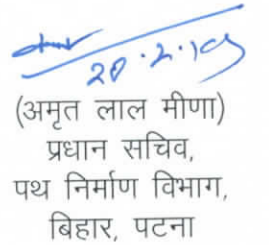 20.2.19
(अमृत लाल मीणा)
प्रधान सचिव,
पथ निर्माण विभाग,
बिहार, पटना